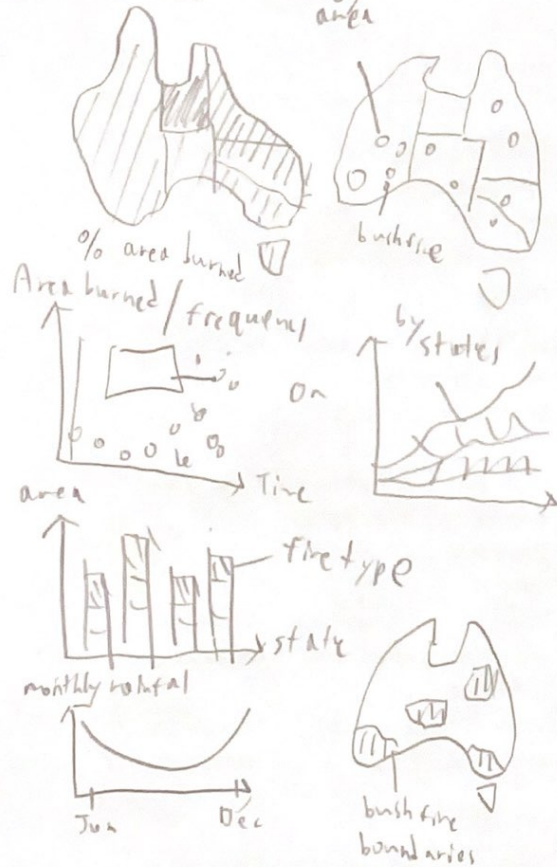 area
% area burned
bushfire
Area burned / frequency
by states
or
Time
area
fire type
state
monthly rainfal
Jun
Dec
bushfire
boundaries